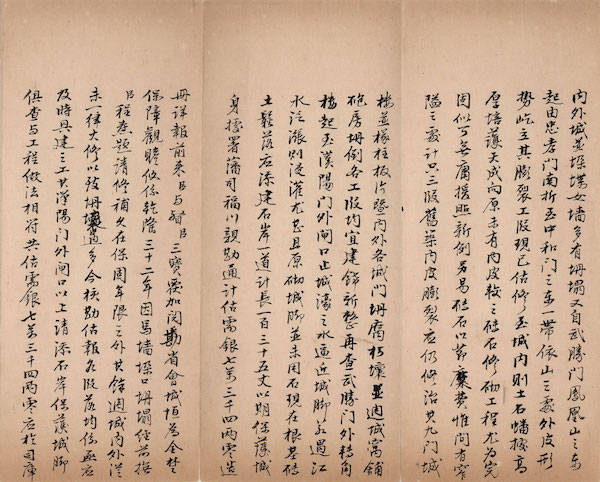 内外城並垜堞女墻多有坍塌又自武勝門鳳凰山之東
起由忠孝門南折至中和門之東一帶依山之處外皮形
勢屹立其膨裂工段現已估修至城內則土石蟠據高
厚培護天成向原未有內皮較之磚石修砌工程尤為完
固似可毋庸援照新例另易磚石以節糜費惟間有窄
隘之處計只三段舊築內皮膨裂應仍修治其九門城
樓並樑柱板片暨內外各城門坍腐朽壞並週城窩舖
砲房坍倒各工段均宜建飾新整再查武勝門外轉角
樓起至漢陽門外閘口止城濠之水逼近城腳如過江
水泛漲則浸灌尤甚且原砌城腳並未用石現在根基磚
土鬆落應添建石岸一道計長一百三十五丈以期保護城
身據署藩司福川親勘通計估需銀七萬三千四兩零造
冊詳報前來臣與督臣三寶覆加閱勘省會城垣為全楚
保障觀瞻攸係乾隆三十二年因馬墻垜口坍塌經前撫
臣程燾題請修補久在保固年限之外其餘週城內外從
未一律大修以致坍壞過多今核勘估報各段落均係亟應
及時興建之工其漢陽門外閘口以上請添石岸保護城腳
俱查與工程做法相符共估需銀七萬三千四兩零應於司庫